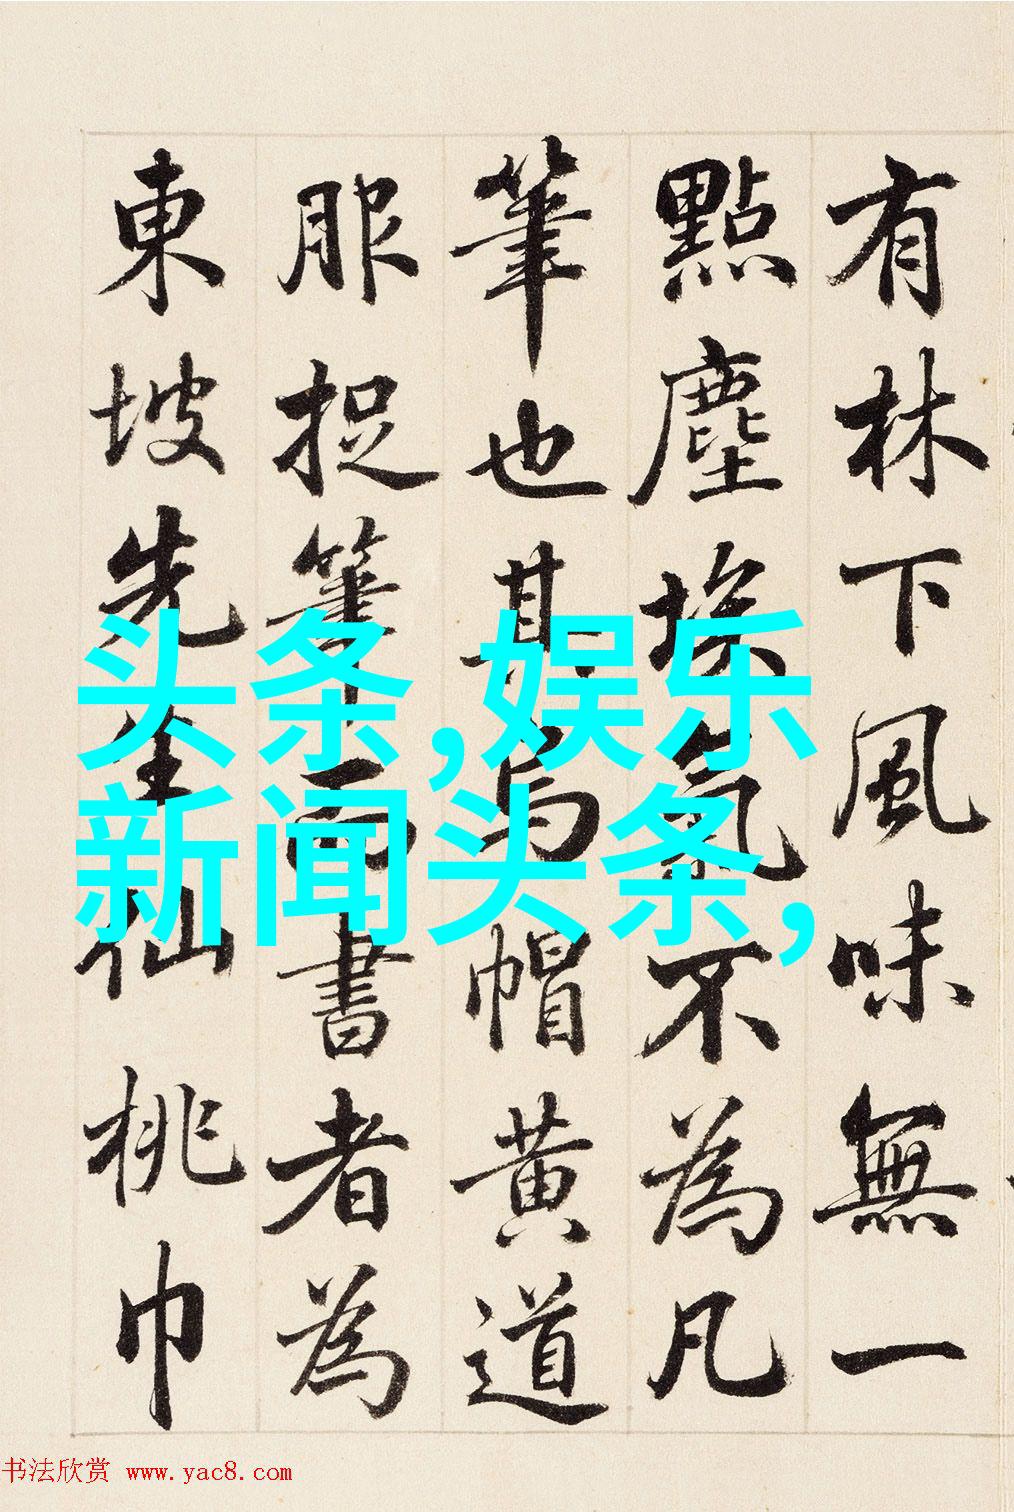 有林下風味無一
點塵埃氣不為凡
筆也其烏帽黃道
服捉筆而書者為
東坡先生仙桃巾
头条,娱乐
新闻头条,
书法欣赏 www.yac8.com